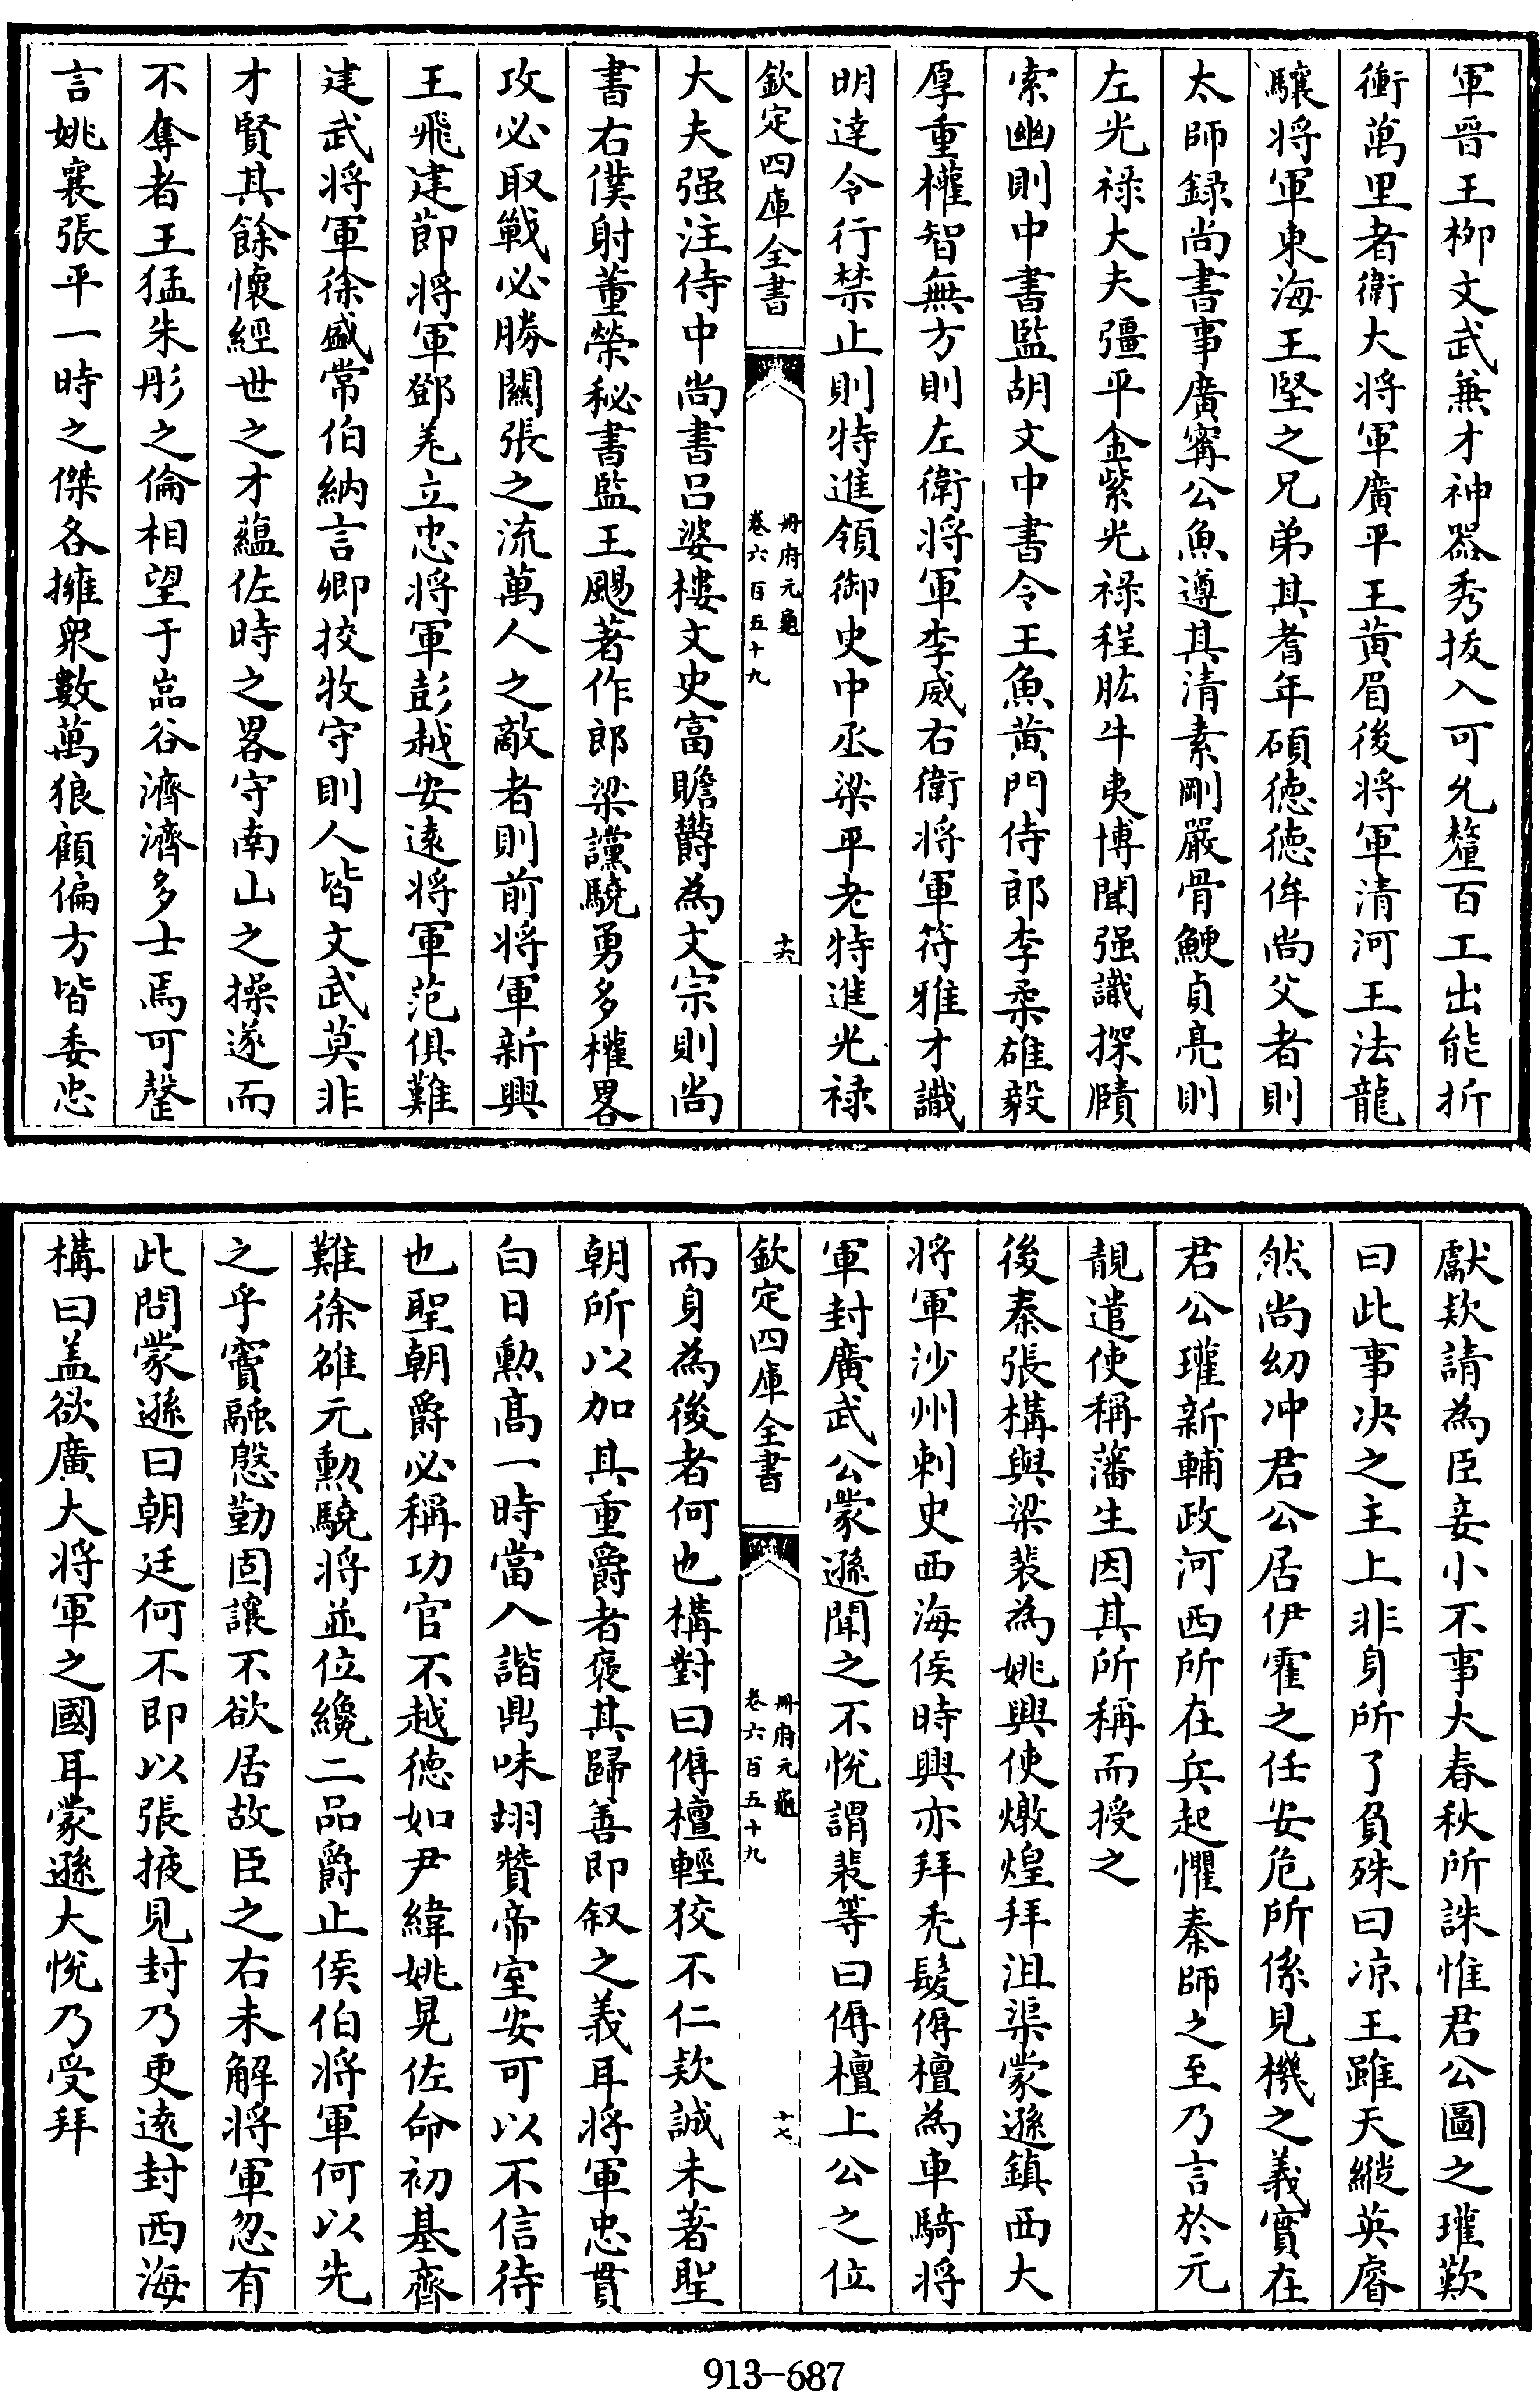 軍晉王栁文武兼才神器秀拔入可允釐百工出能折
衝萬里者衛大將軍廣平王黄眉後將軍清河王法龍
驤將軍東海王堅之兄弟其耆年碩德德侔尚父者則
太師録尚書事廣寗公魚遵其清素剛嚴骨鯁貞亮則
左光禄大夫彊平金紫光禄程肱牛夷博聞强識探賾
索幽則中書監胡文中書令王魚黄門侍郎李柔雄毅
厚重權智無方則左衛將軍李威右衛將軍符雅才識
明逹令行禁止則特進領御史中丞梁平老特進光禄
欽定四庫全書
冊府元龜
卷六百五十九
十六
大夫强汪侍中尚書吕婆樓文史富贍鬱為文宗則尚
書右僕射董榮秘書監王颺著作郎梁讜驍勇多權畧
攻必取戰必勝關張之流萬人之敵者則前將軍新興
王飛建節將軍鄧羌立忠將軍彭越安逺將軍范俱難
建武將軍徐盛常伯納言卿挍牧守則人皆文武莫非
才賢其餘懐經世之才蘊佐時之畧守南山之操遂而
不奪者王猛朱彤之倫相望于嵓谷濟濟多士焉可罄
言姚襄張平一時之傑各擁衆數萬狼顧偏方皆委忠
獻欵請為臣妾小不事大春秋所誅惟君公圖之瓘歎
曰此事决之主上非身所了負殊曰凉王雖天縱英睿
然尚幼冲君公居伊霍之任安危所係見機之義實在
君公瓘新輔政河西所在兵起懼秦師之至乃言於元
靚遣使稱藩生因其所稱而授之
後秦張構與梁裴為姚興使燉煌拜沮渠蒙遜鎮西大
將軍沙州刺史西海侯時興亦拜禿髮傉檀為車騎將
軍封廣武公蒙遜聞之不悅謂裴等曰傉檀上公之位
欽定四庫全書
冊府元龜
卷六百五十九
十七
而身為後者何也構對曰傉檀輕狡不仁欵誠未著聖
朝所以加其重爵者褒其歸善即叙之義耳將軍忠貫
白日勲髙一時當入諧鼎味翊贊帝室安可以不信待
也聖朝爵必稱功官不越德如尹緯姚晃佐命初基齊
難徐雒元勲驍將並位纔二品爵止侯伯將軍何以先
之乎竇融慇勤固讓不欲居故臣之右未解將軍忽有
此問蒙遜曰朝廷何不即以張掖見封乃更逺封西海
構曰盖欲廣大將軍之國耳蒙遜大悅乃受拜
913-687